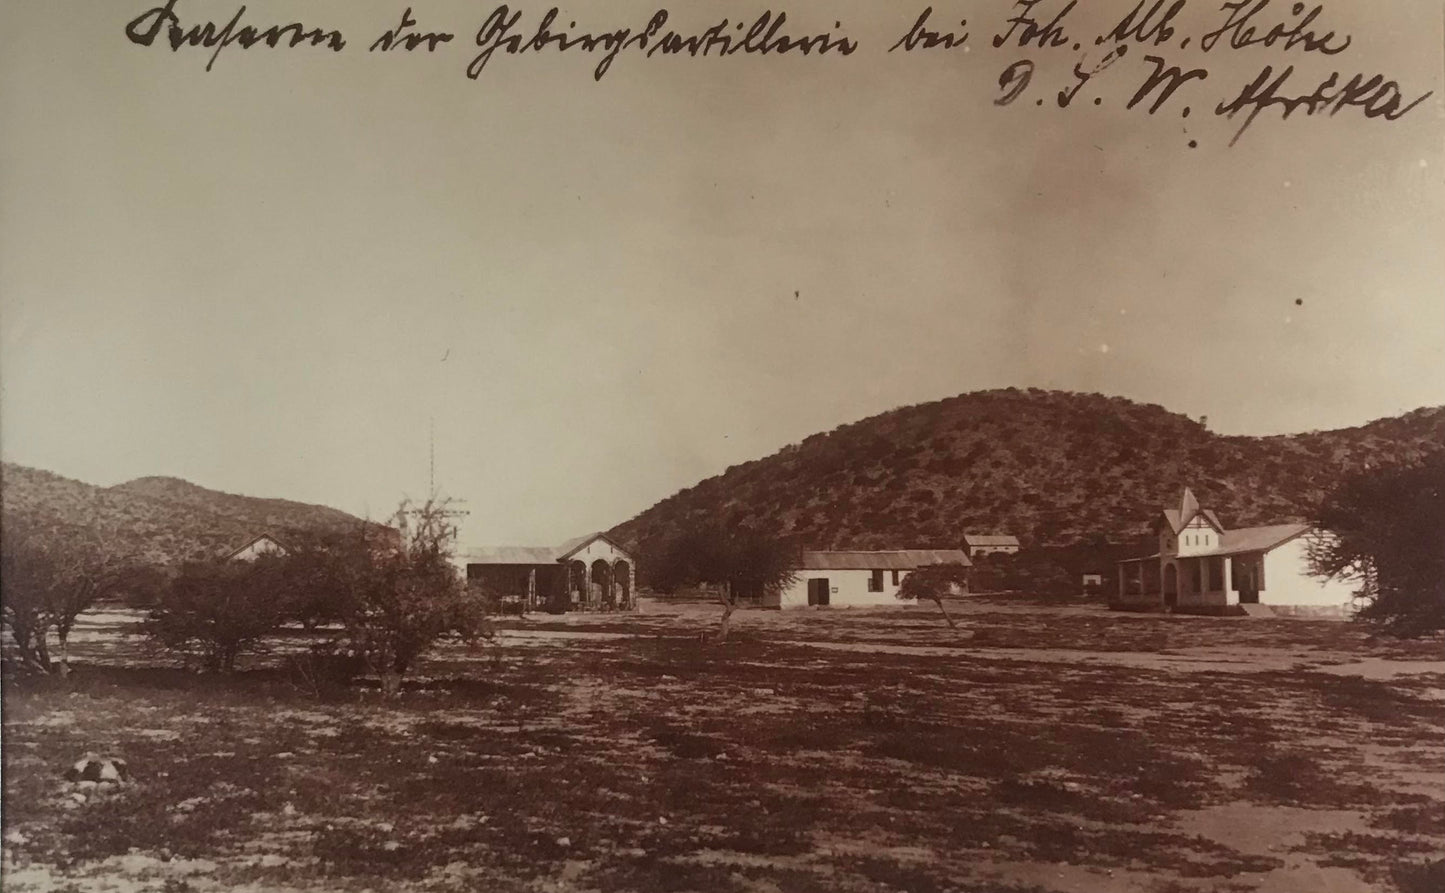 Kaserne der Gebirgsartillerie bei Joh. Alb. Höhe
D. S. W. Afrika